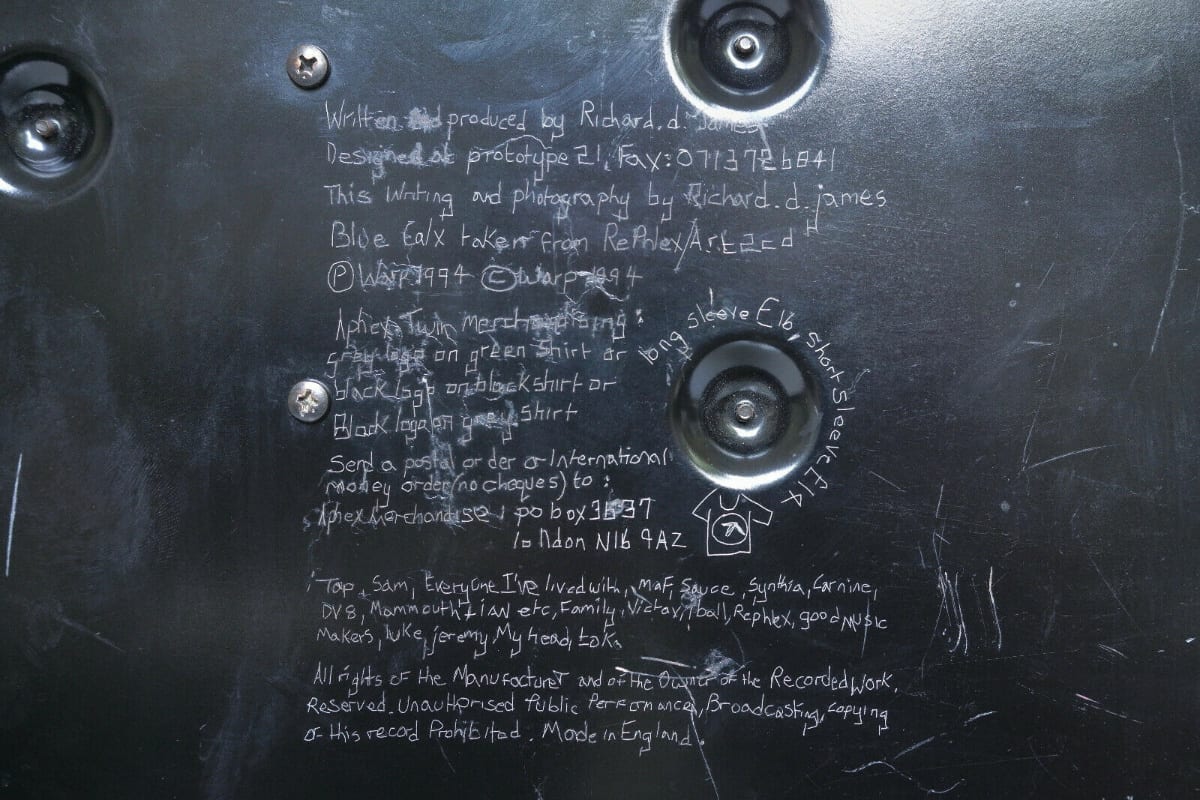 Written and produced by Richard. d. James
Designed at prototype 21. Fax: 0713726841
This Writing and photography by Richard. d. james
Blue Calx taken from Rephlex/Art 2cd
Ⓟ Warp 1994 © Warp 1994
Aphex Twin merchandising :
grey logo on green Shirt or
black logo on black shirt or
Black logo on grey Shirt
long sleeve £16, short sleeve £14
Send a postal order or International
money order (no cheques) to :
Aphex Merchandise : po box 3637
london N16 9AZ
Tap, Sam, Everyone I've lived with, Maf, Sauce, Synthia, Carnine,
DV8, Mammouth, Ian etc, Family, 1ball, Rephlex, good music
Makers, luke, jeremy, My head,
All rights of the Manufacturer and of the Owner of the Recorded Work,
Reserved. Unauthorised Public Performance, Broadcasting, copying
of this record Prohibited. Made in England.